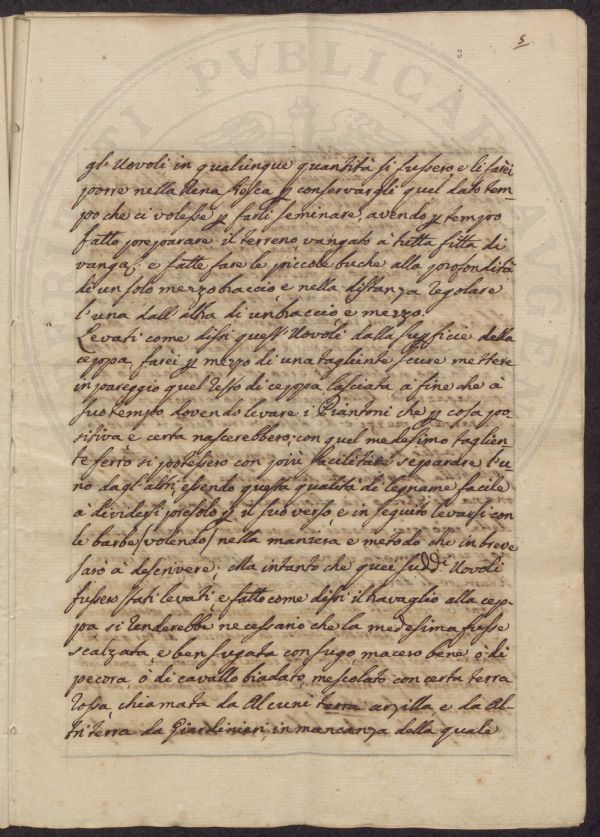 5
3
gl'Uovoli, in qualunque quantità si fussero, e li farei
porre nella Rena fresca p conservargli quel dato tem-
po che ci volesse p farli seminare, avendo p tempo
fatto preparare il terreno, vangato à tutta fitta di
vanga; e fatte fare le piccole buche alla profondità
di un solo mezzo braccio e nella distanza regolare
l'una dall'altra di un braccio e mezzo.
Levati come dissi quest'Uovoli dalla supficie della
ceppa, farei p mezzo di una tagliente scure mettere
in pareggio quel resto di ceppa lasciata à fine che à
suo tempo dovendo levare i Piantoni che p cosa po-
sitiva, e certa nascerebbero; con quel medesimo taglien-
te ferro si potessero con più facilità separare l'u-
no dagl'altri, essendo questa qualità di legname facile
à dividersi presolo p il suo verso, e in seguito levarsi con
le barbe, volendo, nella maniera e metodo che in breve
sarò à descrivere; Ma intanto che quei sudd.i Uovoli
fussero stati levati, e fatto come dissi il travaglio alla cep-
pa si renderebbe necessario che la medesima fusse
scalzata, e ben sugata con sugo macero bene, ò di
pecora, ò di cavallo biadato, mescolato con certa terra
rossa, chiamata da Alcuni terra arzilla e da Al-
tri terra da Giardinieri, in mancanza della quale